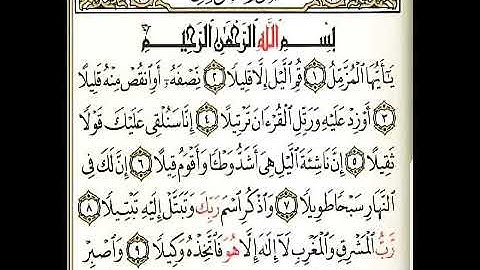 بِسْمِ اللَّهِ الرَّحْمَٰنِ الرَّحِيمِ
يَـٰٓأَيُّهَا ٱلْمُزَّمِّلُ ١ قُمِ ٱلَّيْلَ إِلَّا قَلِيلًا ٢ نِّصْفَهُۥٓ أَوِ ٱنقُصْ مِنْهُ قَلِيلًا
٣ أَوْ زِدْ عَلَيْهِ وَرَتِّلِ ٱلْقُرْءَانَ تَرْتِيلًا ٤ إِنَّا سَنُلْقِى عَلَيْكَ قَوْلًا
ثَقِيلًا ٥ إِنَّ نَاشِئَةَ ٱلَّيْلِ هِىَ أَشَدُّ وَطْـًٔا وَأَقْوَمُ قِيلًا ٦ إِنَّ لَكَ فِى
ٱلنَّهَارِ سَبْحًا طَوِيلًا ٧ وَٱذْكُرِ ٱسْمَ رَبِّكَ وَتَبَتَّلْ إِلَيْهِ تَبْتِيلًا ٨
رَّبُّ ٱلْمَشْرِقِ وَٱلْمَغْرِبِ لَآ إِلَـٰهَ إِلَّا هُوَ فَٱتَّخِذْهُ وَكِيلًا ٩ وَٱصْبِرْ